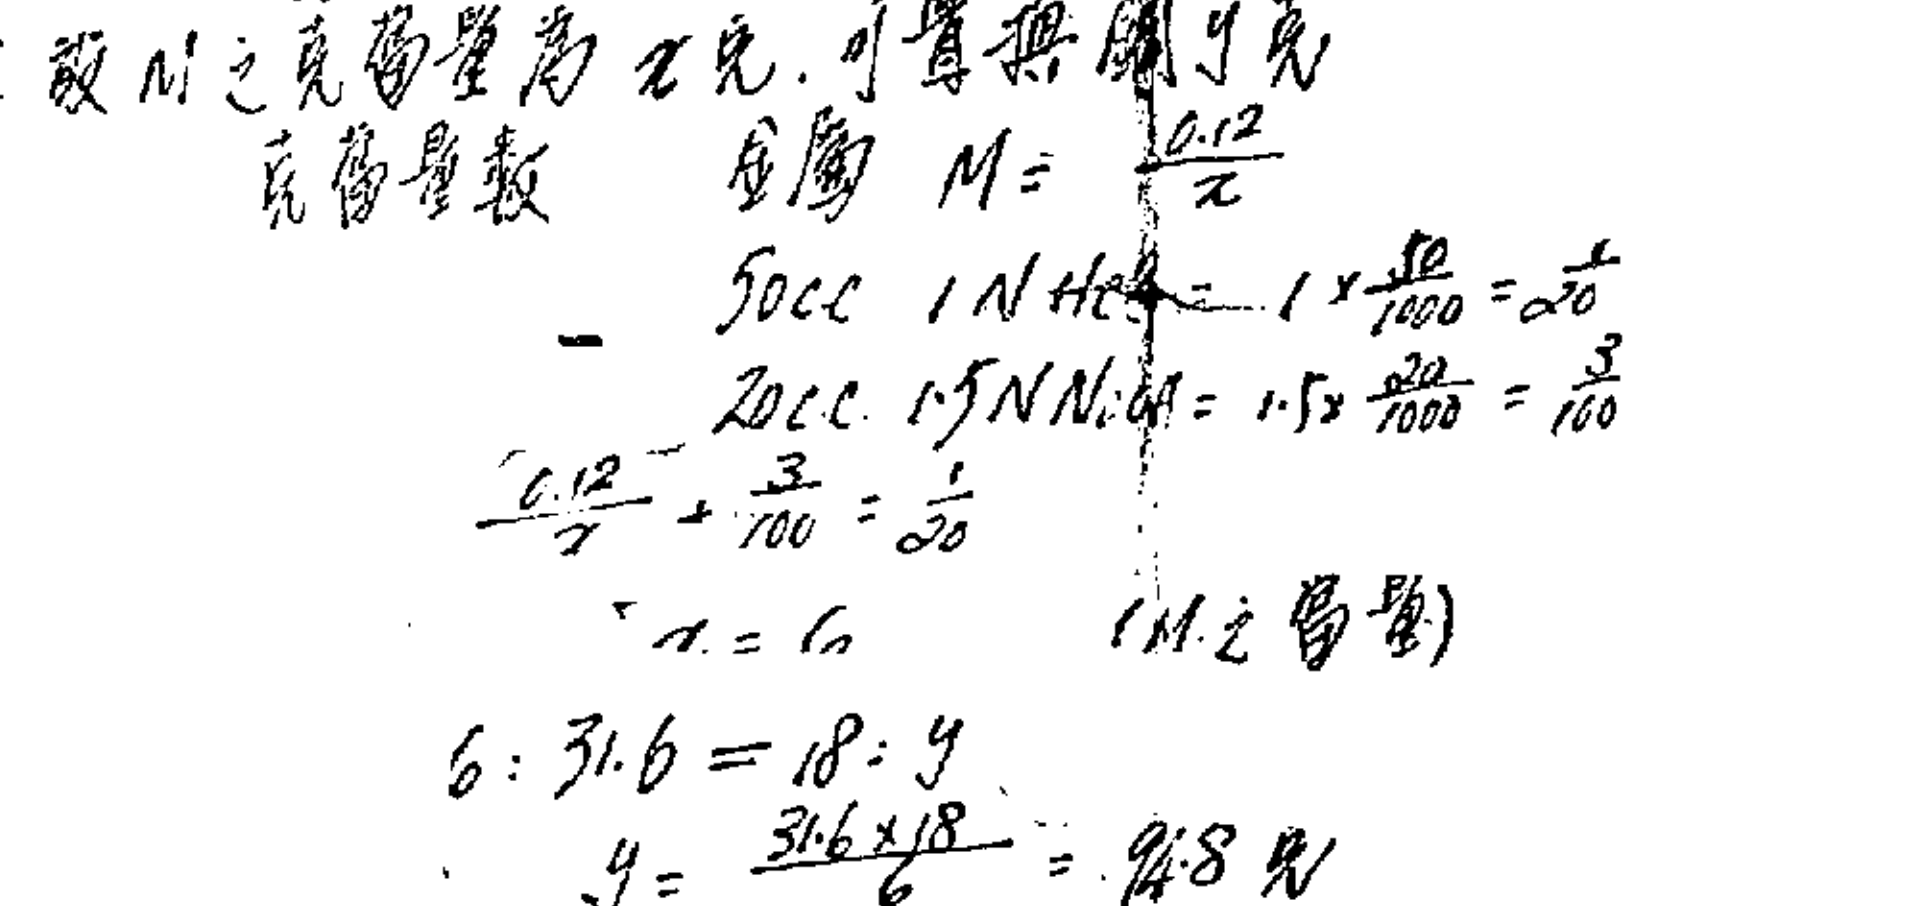 設M之克當量為x克.可置換銅y克
克當量數 金屬 M = 0.12/x
50cc 1N HCl = 1 × 50/1000 = 1/20
20c.c. 1.5N NaOH = 1.5 × 20/1000 = 3/100
0.12/x + 3/100 = 1/20
x = 6 (M之當量)
6 : 31.6 = 18 : y
y = 31.6×18/6 = 94.8克